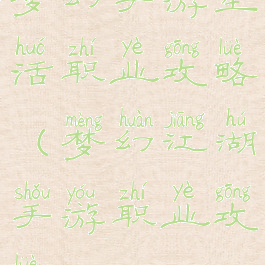 梦幻手游生
huó zhí yè gōng lüè
活职业攻略
mèng huàn jiāng hú
（梦幻江湖
shǒu yóu zhí yè gōng
手游职业攻
lüè